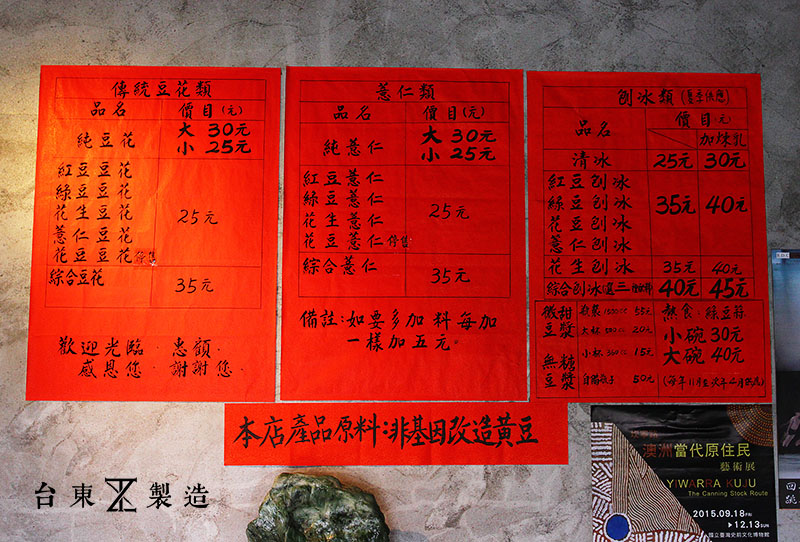 傳統豆花類
品名 價目(元)
純豆花 大 30元
小 25元
紅豆豆花
綠豆豆花
花生豆花
薏仁豆花
花豆豆花 停售
25元
綜合豆花 35元
歡迎光臨．惠顧．
感恩您．謝謝您．
薏仁類
品名 價目(元)
純薏仁 大 30元
小 25元
紅豆薏仁
綠豆薏仁
花生薏仁
花豆薏仁 停售
25元
綜合薏仁 35元
備註:如要多加料每加
一樣加五元。
刨冰類(夏季供應)
品名 價目元
加煉乳
清冰 25元 30元
紅豆刨冰
綠豆刨冰
花豆刨冰
薏仁刨冰
35元 40元
花生刨冰 35元 40元
綜合刨冰選三 40元 45元
微甜豆漿
無糖豆漿
1500cc 55元
大杯 500cc 20元
小杯 360cc 15元
自備瓶子 50元
熱食:綠豆蒜
小碗 30元
大碗 40元
(每年11月至次年4月供應)
本店產品原料:非基因改造黃豆
台東製造
澳洲當代原住民
藝術展
YIWARRA KUJU
The Canning Stock Route
2015.09.18 FRI
12.13 SUN
國立臺灣史前文化博物館